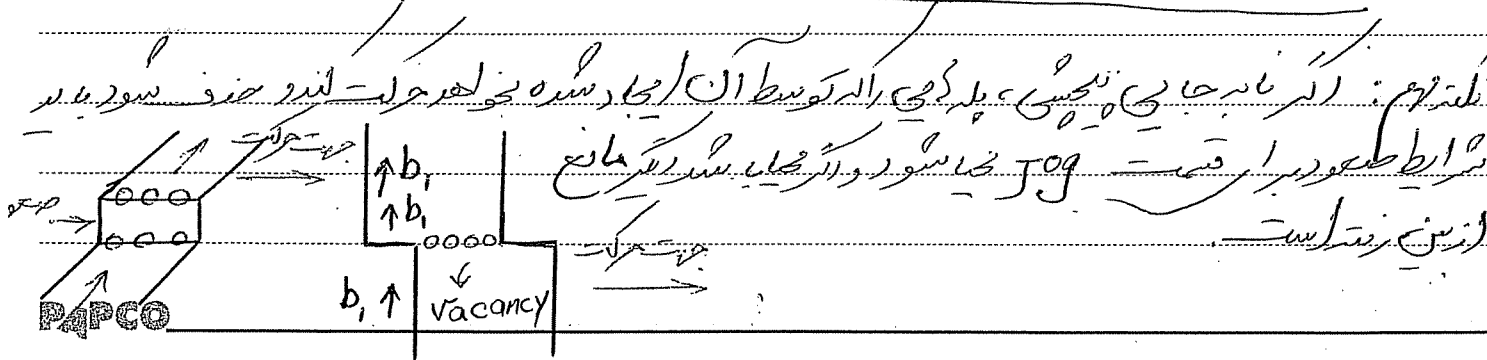 نکته مهم: اگر نابه جایی پیچشی، پله ایی را که توسط آن ایجاد شده بخواهد حرکت کند و حذف شود باید
شرایط صعود برای قسمت Jog محیا شود و اگر محیا شد دیگر مانع
از بین رفته است.
جهت حرکت
جهت حرکت
صعود
b₁
b₁
b₁
vacancy
PAPCO